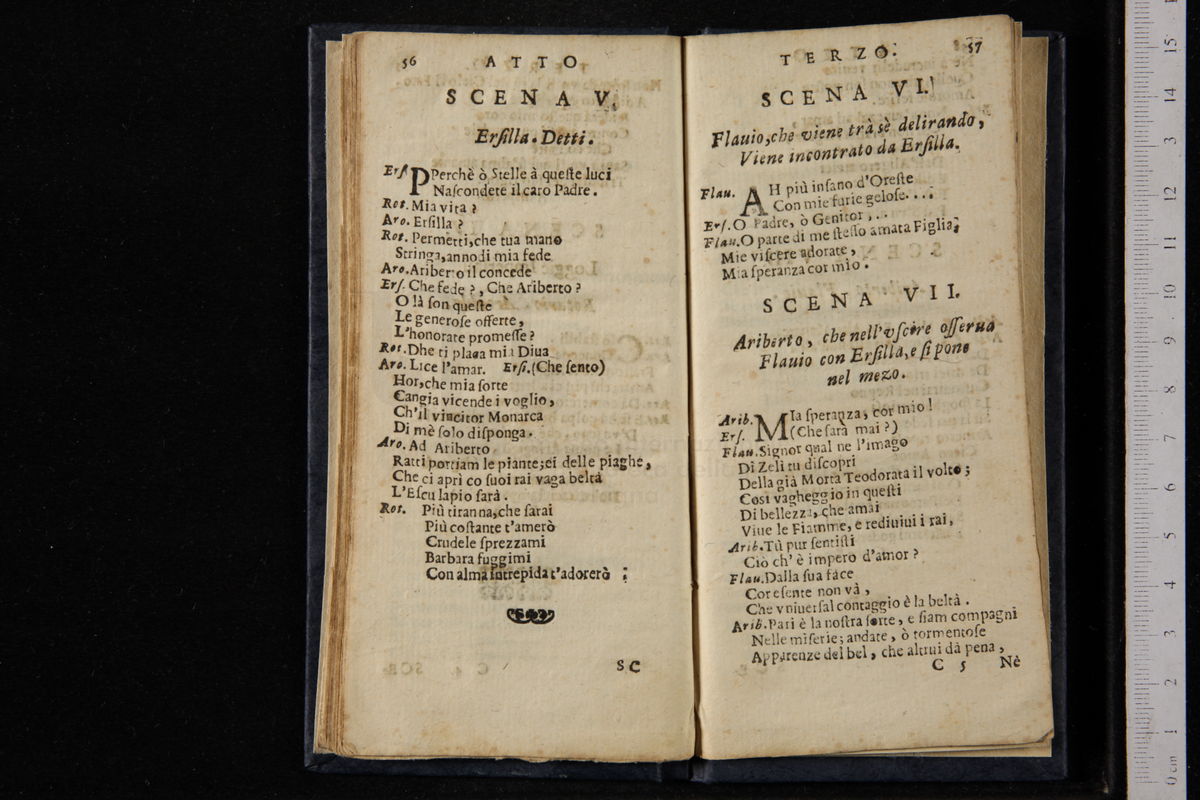 56
ATTO
SCENA V.
Erſilla. Detti.
Erſ PPerchè ò Stelle à queſte luci
Naſcondete il caro Padre.
Rot. Mia vita?
Aro. Erſilla?
Rot. Permetti, che tua mano
Stringa, anno di mia fede
Aro. Ariberto il concede
Erſ. Che fede?, Che Ariberto?
O là ſon queſte
Le generoſe offerte,
L'honorate promeſſe?
Rot. Dhe ti placa mia Diua
Aro. Lice l'amar. Erſi. (Che ſento)
Hor, che mia ſorte
Cangia vicende i voglio,
Ch'il vincitor Monarca
Di mè ſolo diſponga.
Aro. Ad Ariberto
Ratti portiam le piante; ei delle piaghe,
Che ci aprì co ſuoi rai vaga beltà
L'Eſculapio ſarà.
Rot. Più tiranna, che ſarai
Più coſtante t'amerò
Crudele ſprezzami
Barbara fuggimi
Con alma intrepida t'adorerò;
SC
TERZO.
57
SCENA VI.
Flauio, che viene trà sè delirando,
Viene incontrato da Erſilla.
Flau. AH più inſano d'Oreſte
Con mie furie geloſe....
Erſ. O Padre, ò Genitor,..
Flau. O parte di me ſteſſo amata Figlia,
Mie viſcere adorate,
Mia ſperanza cor mio.
SCENA VII.
Ariberto, che nell'vſcire oſſerua
Flauio con Erſilla, e ſi pone
nel mezo.
Arib. MIa ſperanza, cor mio!
Erſ. (Che ſarà mai?)
Flau. Signor qual ne l'imago
Di Zeli tu diſcopri
Della già Morta Teodorata il volto;
Così vagheggio in queſti
Di bellezza, che amai
Viue le Fiamme, e rediuiui i rai,
Arib. Tù pur ſentiſti
Ciò ch'è impero d'amor?
Flau. Dalla ſua face
Cor eſente non và,
Che vniuerſal contaggio è la beltà.
Arib. Pari è la noſtra ſorte, e ſiam compagni
Nelle miſerie; andate, ò tormentoſe
Apparenze del bel, che altrui dà pena,
C 5 Nè